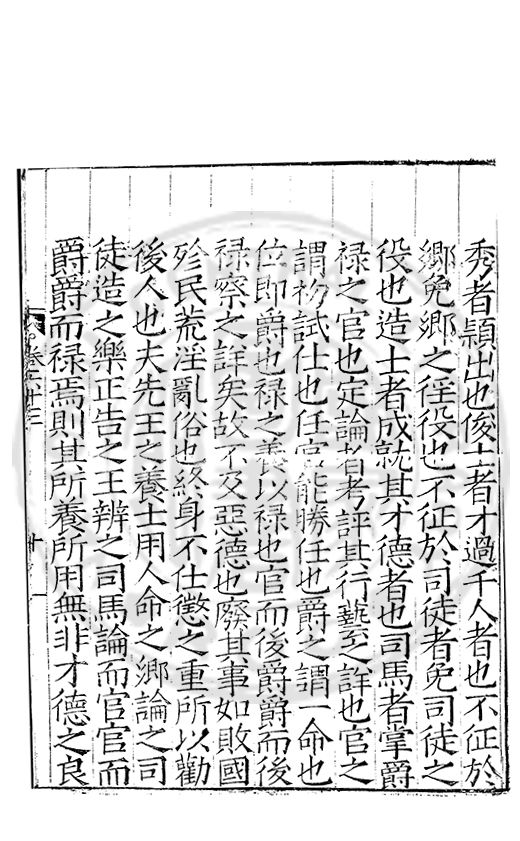 秀者穎出也俊士者才過千人者也不征於
鄉免鄉之徭役也不征於司徒者免司徒之
役也造士者成就其才德者也司馬者掌爵
禄之官也定論者考評其行藝至詳也官之
謂初試仕也任官能勝任也爵之謂一命也
位即爵也禄之養以禄也官而後爵爵而後
禄察之詳矣故不及惡德也廢其事如敗國
殄民荒淫亂俗也終身不仕懲之重所以勸
後人也夫先王之養士用人命之鄉論之司
徒造之樂正告之王辨之司馬論而官官而
爵爵而禄焉則其所養所用無非才德之良